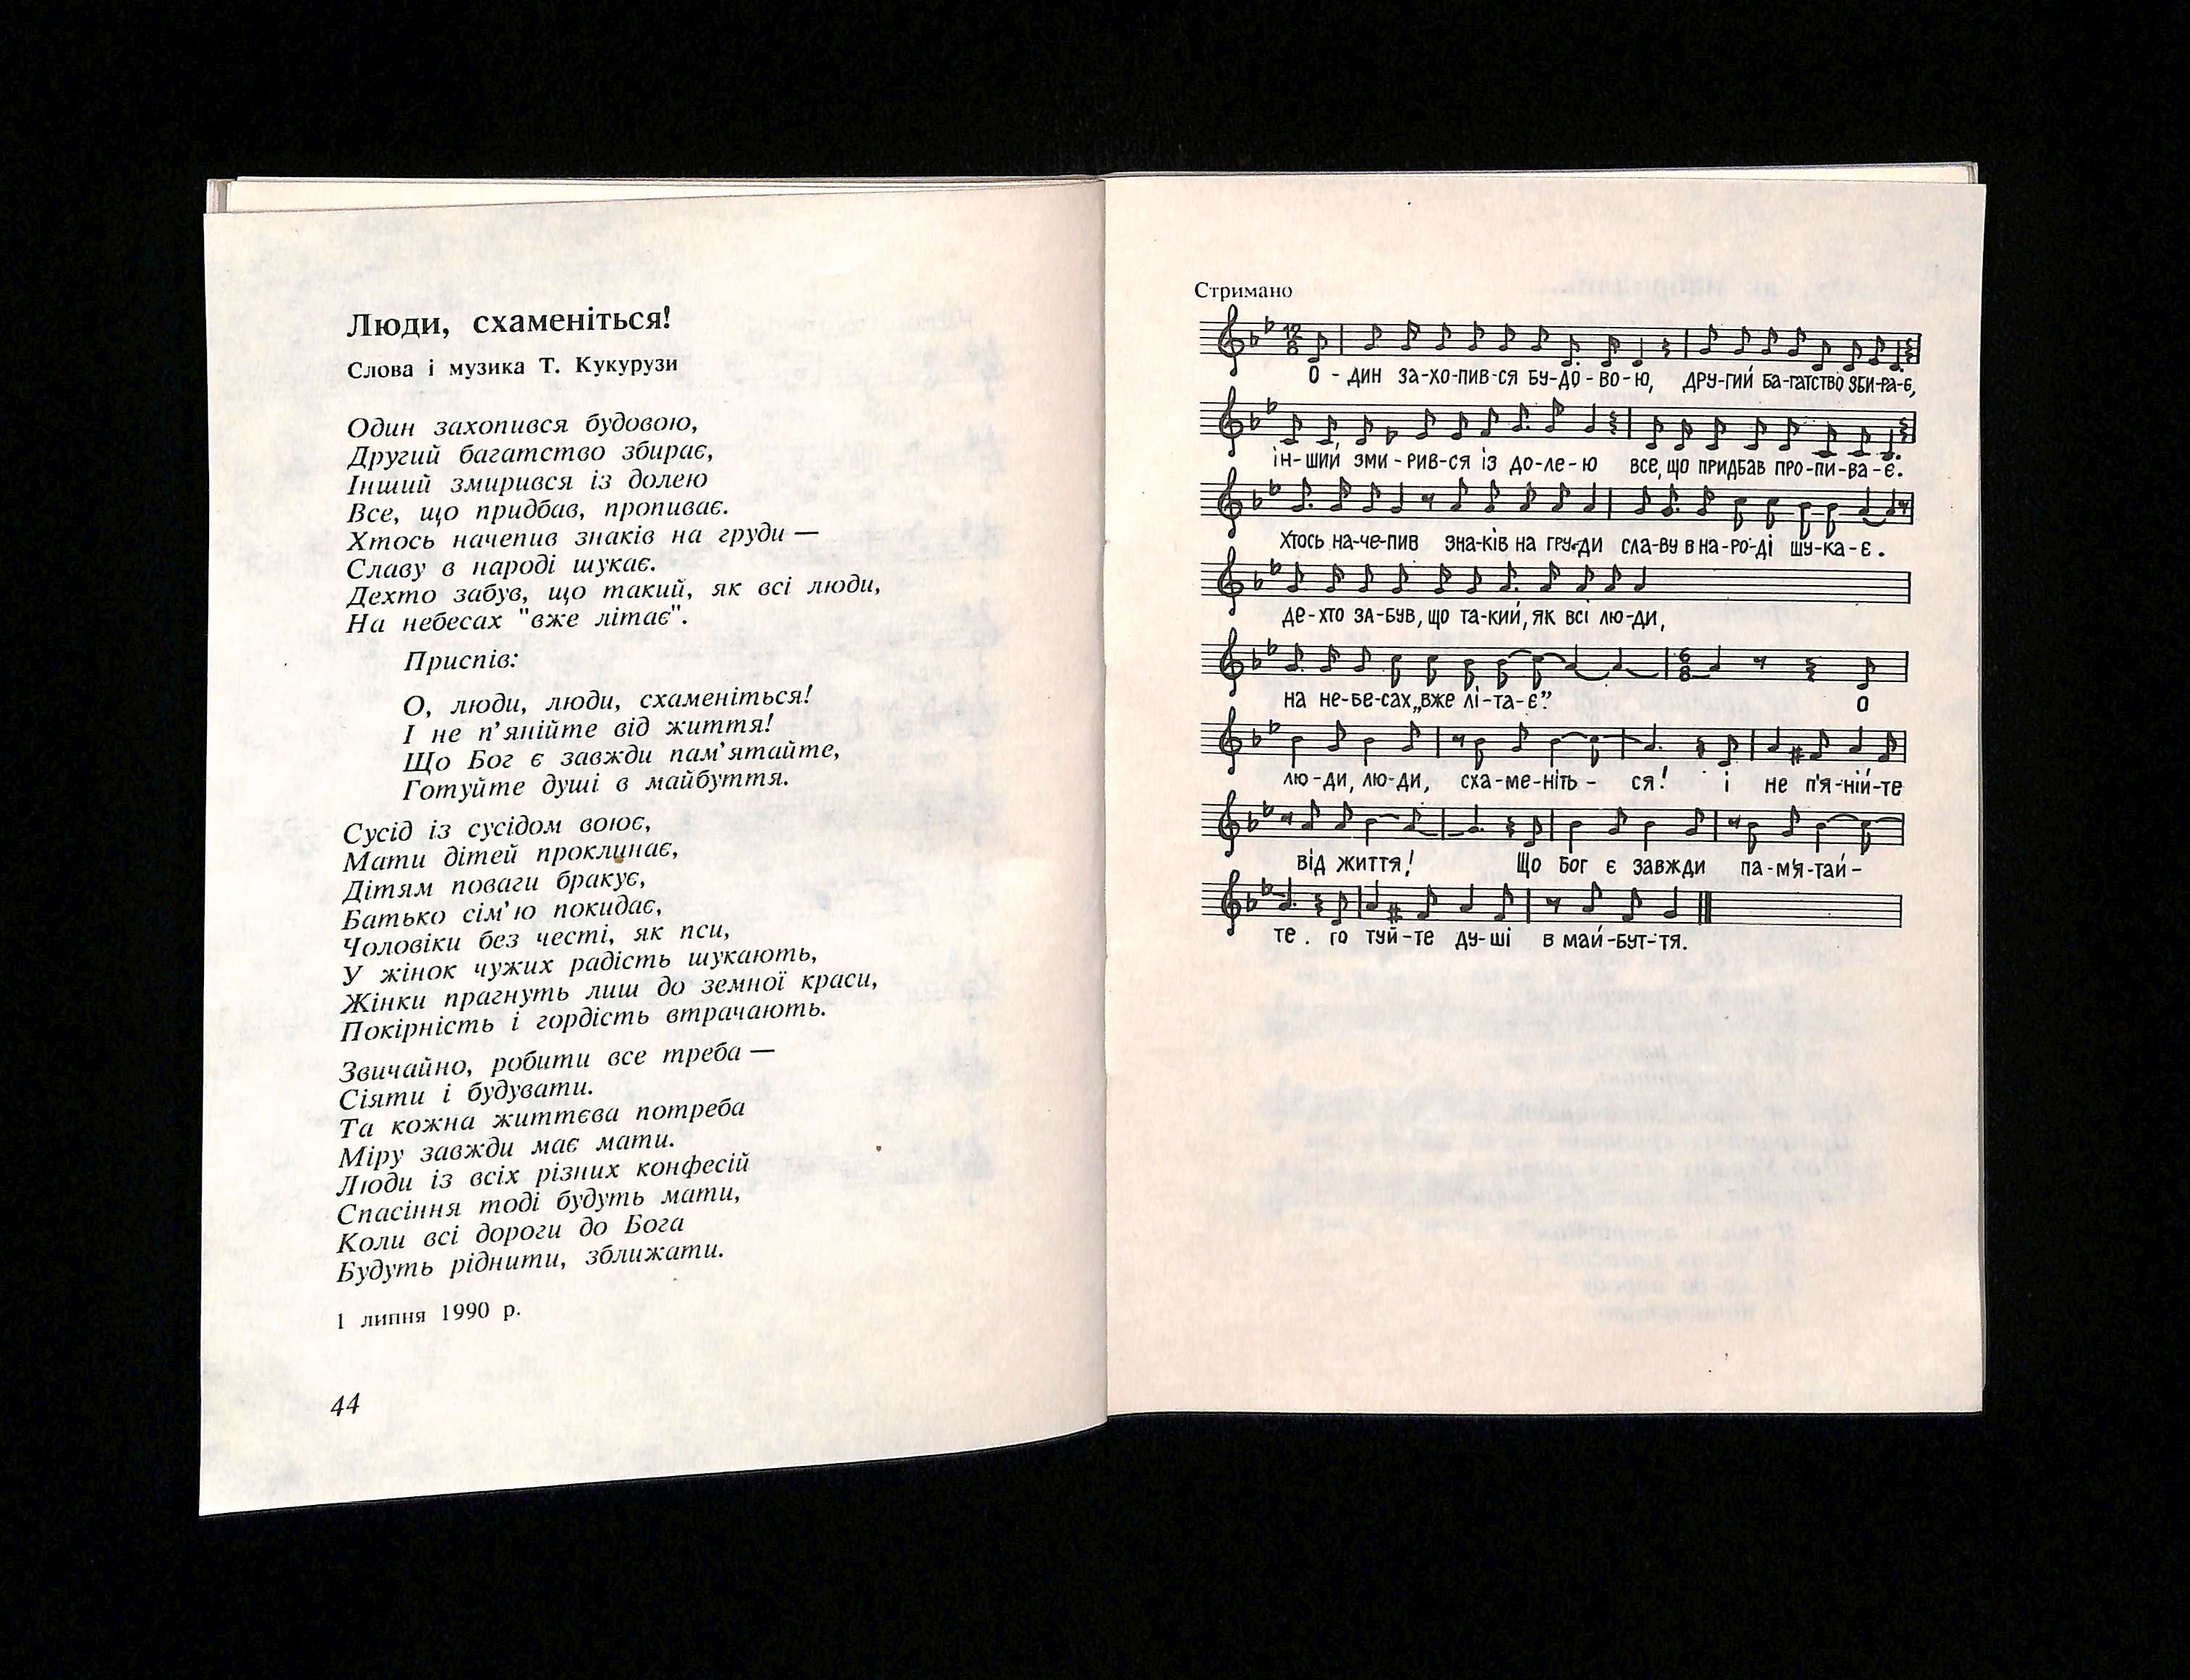 Люди, схаменіться!
Слова і музика Т. Кукурузи
Один захопився будовою,
Другий багатство збирає,
Інший змирився із долею
Все, що придбав, пропиває.
Хтось начепив знаків на груди —
Славу в народі шукає.
Дехто забув, що такий, як всі люди,
На небесах "вже літає".
Приспів:
О, люди, люди, схаменіться!
І не п'янійте від життя!
Що Бог є завжди пам'ятайте,
Готуйте душі в майбуття.
Сусід із сусідом воює,
Мати дітей проклинає,
Дітям поваги бракує,
Батько сім'ю покидає,
Чоловіки без честі, як пси,
У жінок чужих радість шукають,
Жінки прагнуть лиш до земної краси,
Покірність і гордість втрачають.
Звичайно, робити все треба —
Сіяти і будувати.
Та кожна життєва потреба
Міру завжди має мати.
Люди із всіх різних конфесій
Спасіння тоді будуть мати,
Коли всі дороги до Бога
Будуть ріднити, зближати.
1 липня 1990 р.
44
Стримано
12
8
О - дин за-хо-пив-ся бу-до-во-ю, дру-гий ба-гатство зби-ра-є,
ін-ший зми-рив-ся із до-ле-ю все, що придбав про-пи-ва-є.
Хтось на-че-пив зна-ків на гру-ди сла-ву в на-ро-ді шу-ка-є.
де-хто за-був, що та-кий, як всі лю-ди,
6
8
на не-бе-сах „вже лі-та-є". О
лю-ди, лю-ди, сха-ме-ніть - ся! і не п'я-ній-те
від життя! Що Бог є завжди па-м'я-тай-
те. го туй-те ду-ші в май-бут-тя.